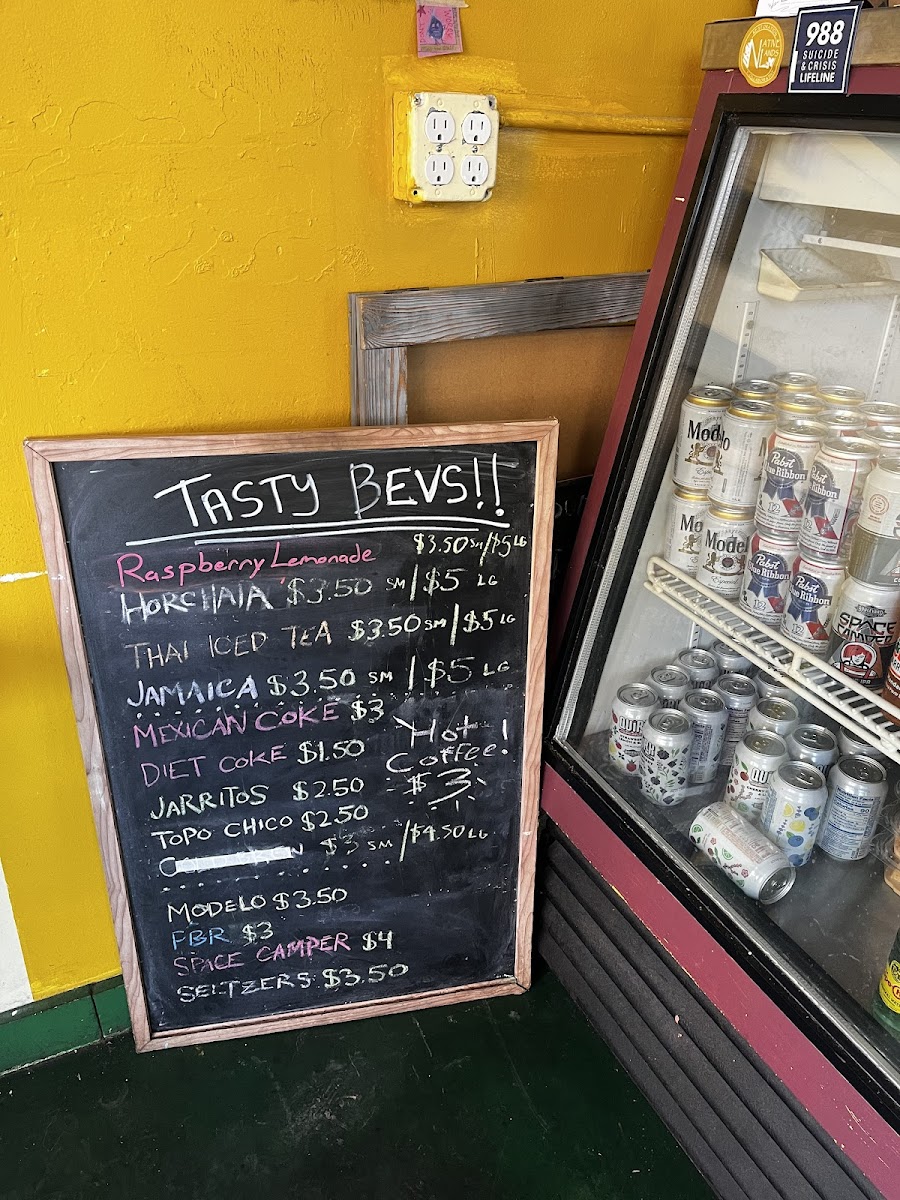 988
SUICIDE
& CRISIS
LIFELINE
NATIVE
LANDS
TASTY BEVS!!
Raspberry Lemonade $3.50 SM/$5 LG
HORCHATA $3.50 SM/$5 LG
THAI ICED TEA $3.50 SM/$5 LG
JAMAICA $3.50 SM/$5 LG
MEXICAN COKE $3
DIET COKE $1.50
Hot
Coffee!
$3
JARRITOS $2.50
TOPO CHICO $2.50
$3 SM/$4.50 LG
MODELO $3.50
PBR $3
SPACE CAMPER $4
SELTZERS $3.50
Modelo
Pabst
Blue Ribbon
Pabst
Blue Ribbon
12
12
Modelo
Pabst
Blue Ribbon
12
Pabst
Blue Ribbon
12
SPACE
CAMPER
IPA